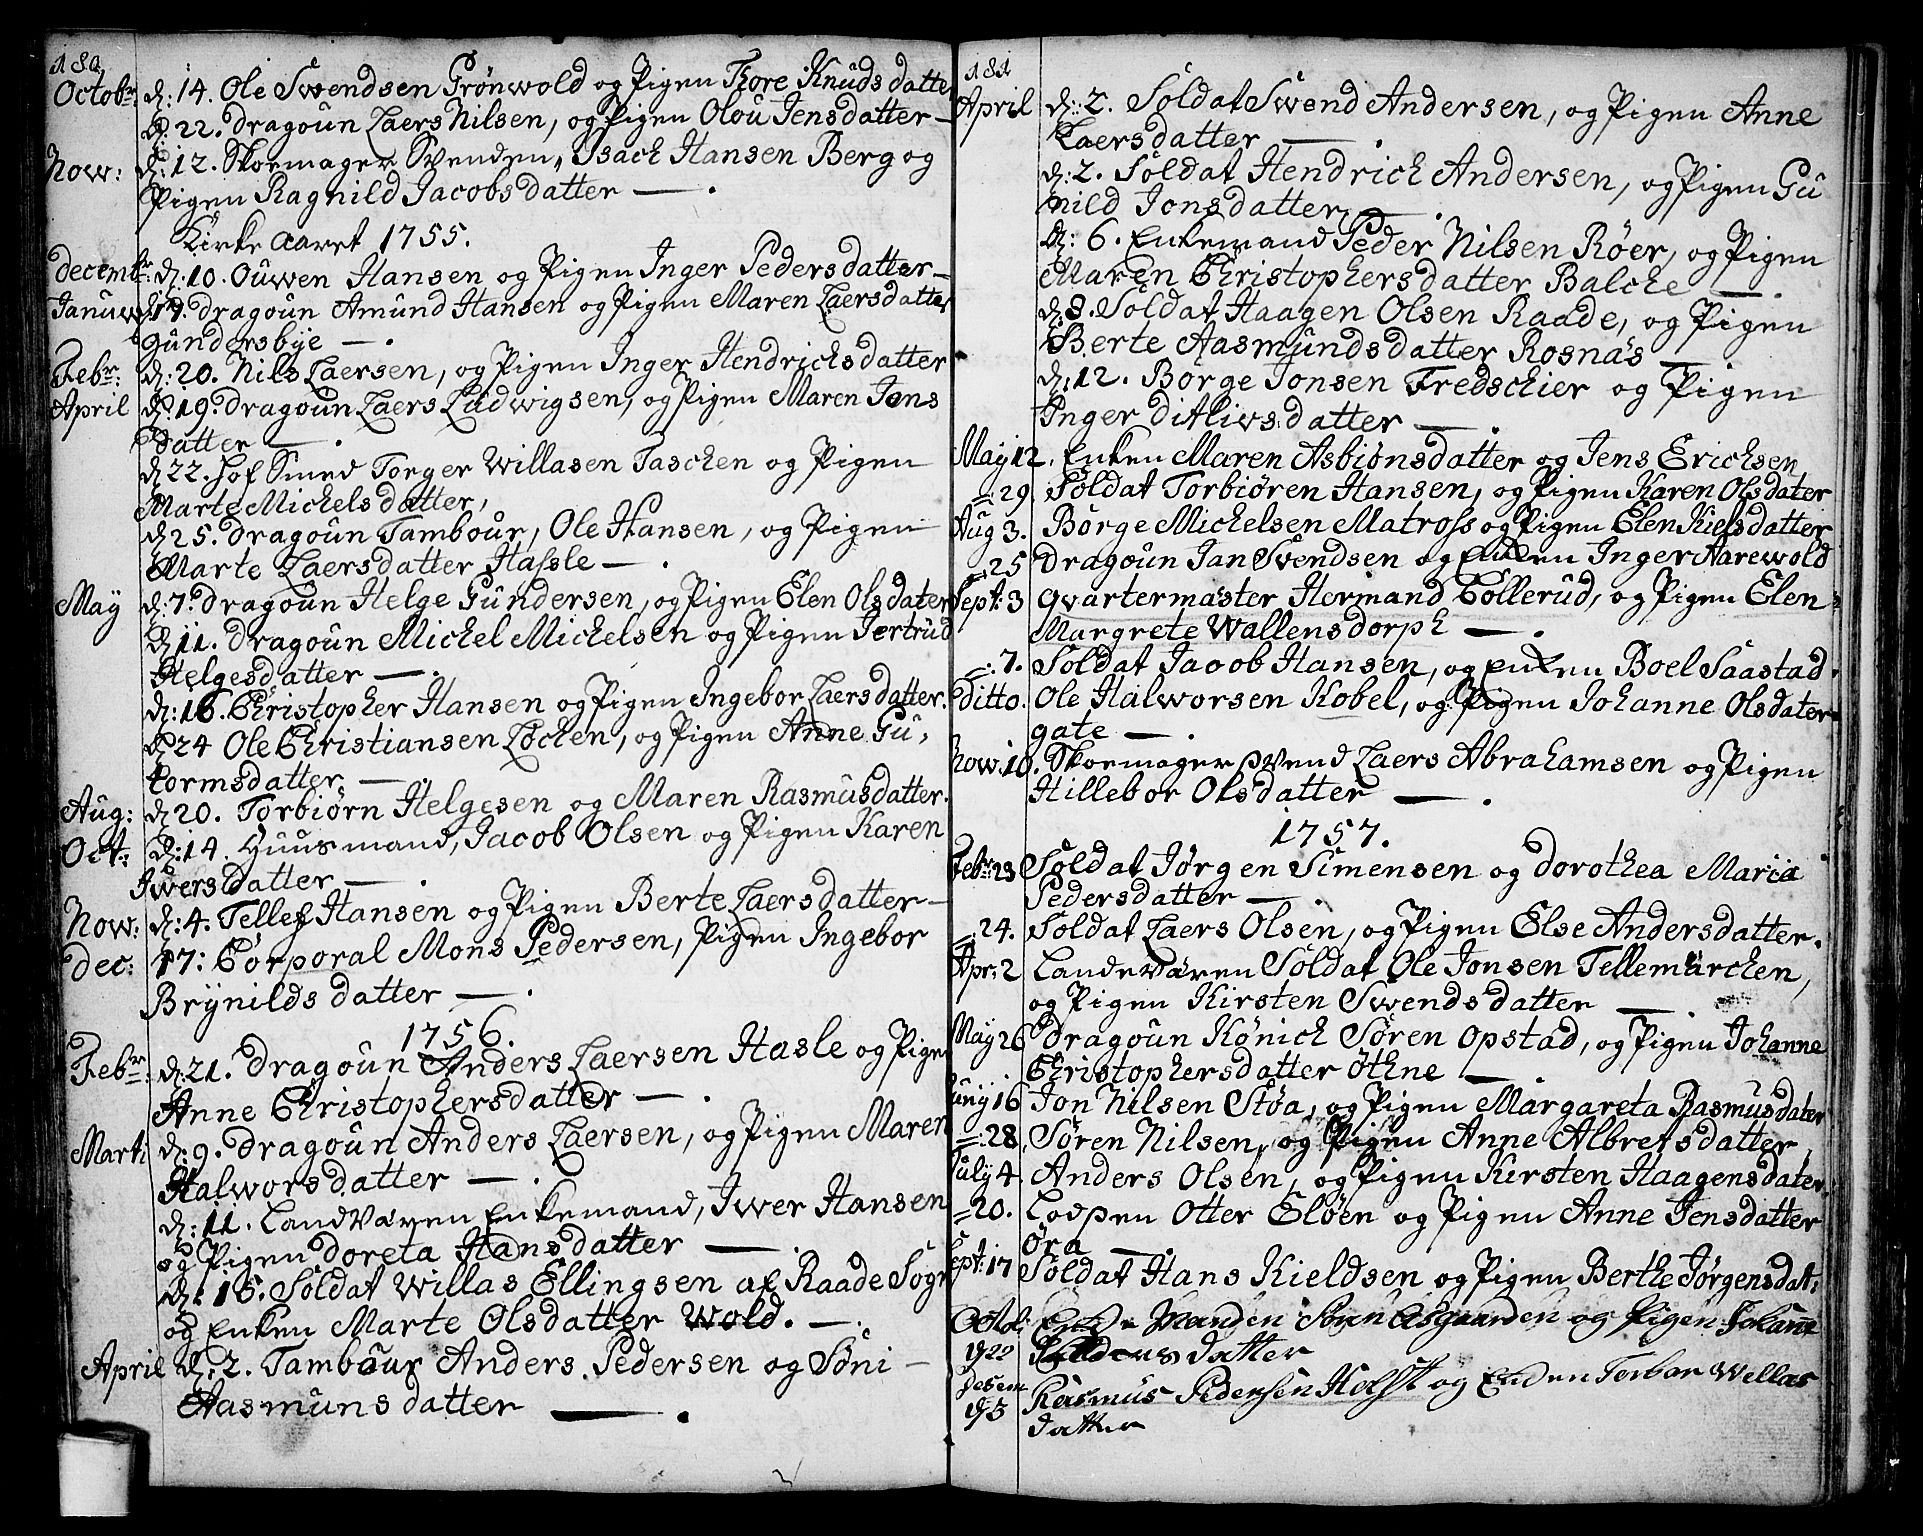 180
Octobr. d: 14. Ole Swendsen Grönwold og Pigen Thore Knuds datter
d: 22. Dragoun Laers Nilsen, og Pigen Olou Jensdatter —
Now: d: 12. Skoemager Svenden, Isach Hansen Berg og
Pigen Ragnild Jacobsdatter — .
Kirke Aaret 1755.
Decembr: d: 10. Ouwen Hansen og Pigen Inger Pedersdatter —
Januw. d 19. Dragoun Amund Hansen og Pigen Maren Laersdatter
Gundersbye — .
Febr: d: 20. Nils Laersen, og Pigen Inger Hendrichsdatter
April d: 19. Dragoun Laers Ludwigsen, og Pigen Maren Jens
datter — .
d 22. Hof Smed Torger Willasen Taschen og Pigen
Marte Michelsdatter,
d 25. Dragoun Tambour, Ole Hansen, og Pigen
Marte Laersdatter Hassle — .
May d: 7. Dragoun Helge Gundersen, og Pigen Elen Olsdater
d 11. Dragoun Michel Michelsen og Pigen Jertrud
Helgesdatter — .
d: 16. Christopher Hansen og Pigen Ingebor Laersdatter.
d 24 Ole Christiansen Løchen, og Pigen Anne Gu,
tormsdatter — .
Aug: d 20. Torbiörn Helgesen og Maren Rasmusdatter.
Oct: d: 14. Huusmand, Jacob Olsen og Pigen Karen
Iwersdatter — .
Now: d: 4. Tellef Hansen og Pigen Berte Laersdatter —
Dec: 17: Corporal Mons Pedersen, Pigen Ingebor
Brynilds datter — .
1756.
Febr: d: 21. Dragoun Anders Laersen Hasle og Pigen
Anne Christophersdatter — .
Marti d: 9. Dragoun Anders Laersen, og Pigen Maren
Halworsdatter — .
d: 11. Landvären Enkemand, Iwer Hansen
og Pigen Doreta Hansdatter — .
d: 16. Soldat Willas Ellingsen af Raade Sogn
og Enken Marte Olsdatter Wold. — .
April d: 2. Tambour Anders Pedersen og Söni —
Aasmunsdatter — .
181
April d: 2. Soldat Swend Andersen, og Pigen Anne
Laersdatter — .
d: 2. Soldat Hendrich Andersen, og Pigen Gu
nild Jonsdatter — .
d: 6. Enkemand Peder Nilsen Röer, og Pigen
Maren Christophersdatter Balche — .
d: 8. Soldat Haagen Olsen Raade, og Pigen
Berte Aasmundsdatter Rosnäs —
d: 12. Börge Jonsen Fredschier og Pigen
Inger Ditlivsdatter — .
May 12. Enken Maren Asbiönsdatter og Jens Erichsen,
=: 29. Soldat Torbiören Hansen, og Pigen Karen Olsdater
Aug 3. Börge Michelsen Matross og Pigen Elen Kielsdatter
=: 25 Dragoun Jan Svendsen og Enken Inger Aarewold
Sept: 3 Qvartermäster Hermand Collerud, og Pigen Elen
Margrete Wallensdorph — .
=: 7. Soldat Jacob Hansen, og Enken Boel Saastad.
Ditto. Ole Halworsen Kobel, og Pigen Johanne Olsdater
gate — .
Now. 10. Skoemager svend Laers Abrahamsen og Pigen
Hillebor Olsdatter — .
1757.
Febr: 23 Soldat Jörgen Simensen og Dorothea Maria
Pedersdatter — .
=: 24. Soldat Laers Olsen, og Pigen Else Andersdatter.
Apr: 2 Landevären Soldat Ole Jonsen Tellemarchen,
og Pigen Kirsten Swendsdatter —
May 26 Dragoun Könich Sören Opstad, og Pigen Johanne
Christophersdatter Othne — .
Juny 16 Jon Nilsen Stöa, og Pigen Margareta Rasmusdater
=: 28 Sören Nilsen, og Pigen Anne Albretsdatter,
July 4 Anders Olsen, og Pigen Kirsten Haagensdater.
=: 20. Lodsen Otter Elöen og Pigen Anne Jensdatter
Öra — .
Sept: 17 Soldat Hans Kieldsen og Pigen Berthe Jörgensdat:
Octob: Enke Manden Sören og Pigen Johanne
d 22 datter
Desem Rasmus Pedersen Holst og Enden Torbor Wellas
d 3 datter